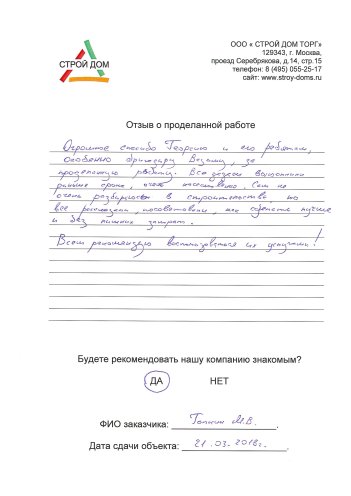 СТРОЙ ДОМ
ООО « СТРОЙ ДОМ ТОРГ»
129343, г. Москва,
проезд Серебрякова, д.14, стр.15
телефон: 8 (495) 055-25-17
сайт: www.stroy-doms.ru
Отзыв о проделанной работе
Огромное спасибо Георгию и его ребятам,
особенно бригадиру Вадиму, за
проделанную работу. Все сделали
раньше срока, качественно. Сам не
очень разбираюсь в строительстве, но
все рассказали, посоветовали, как сделать лучше
и без лишних затрат.
Всем рекомендую воспользоваться их услугами!
Будете рекомендовать нашу компанию знакомым?
ДА НЕТ
ФИО заказчика: М.В.
Дата сдачи объекта: 21.03.2018г.